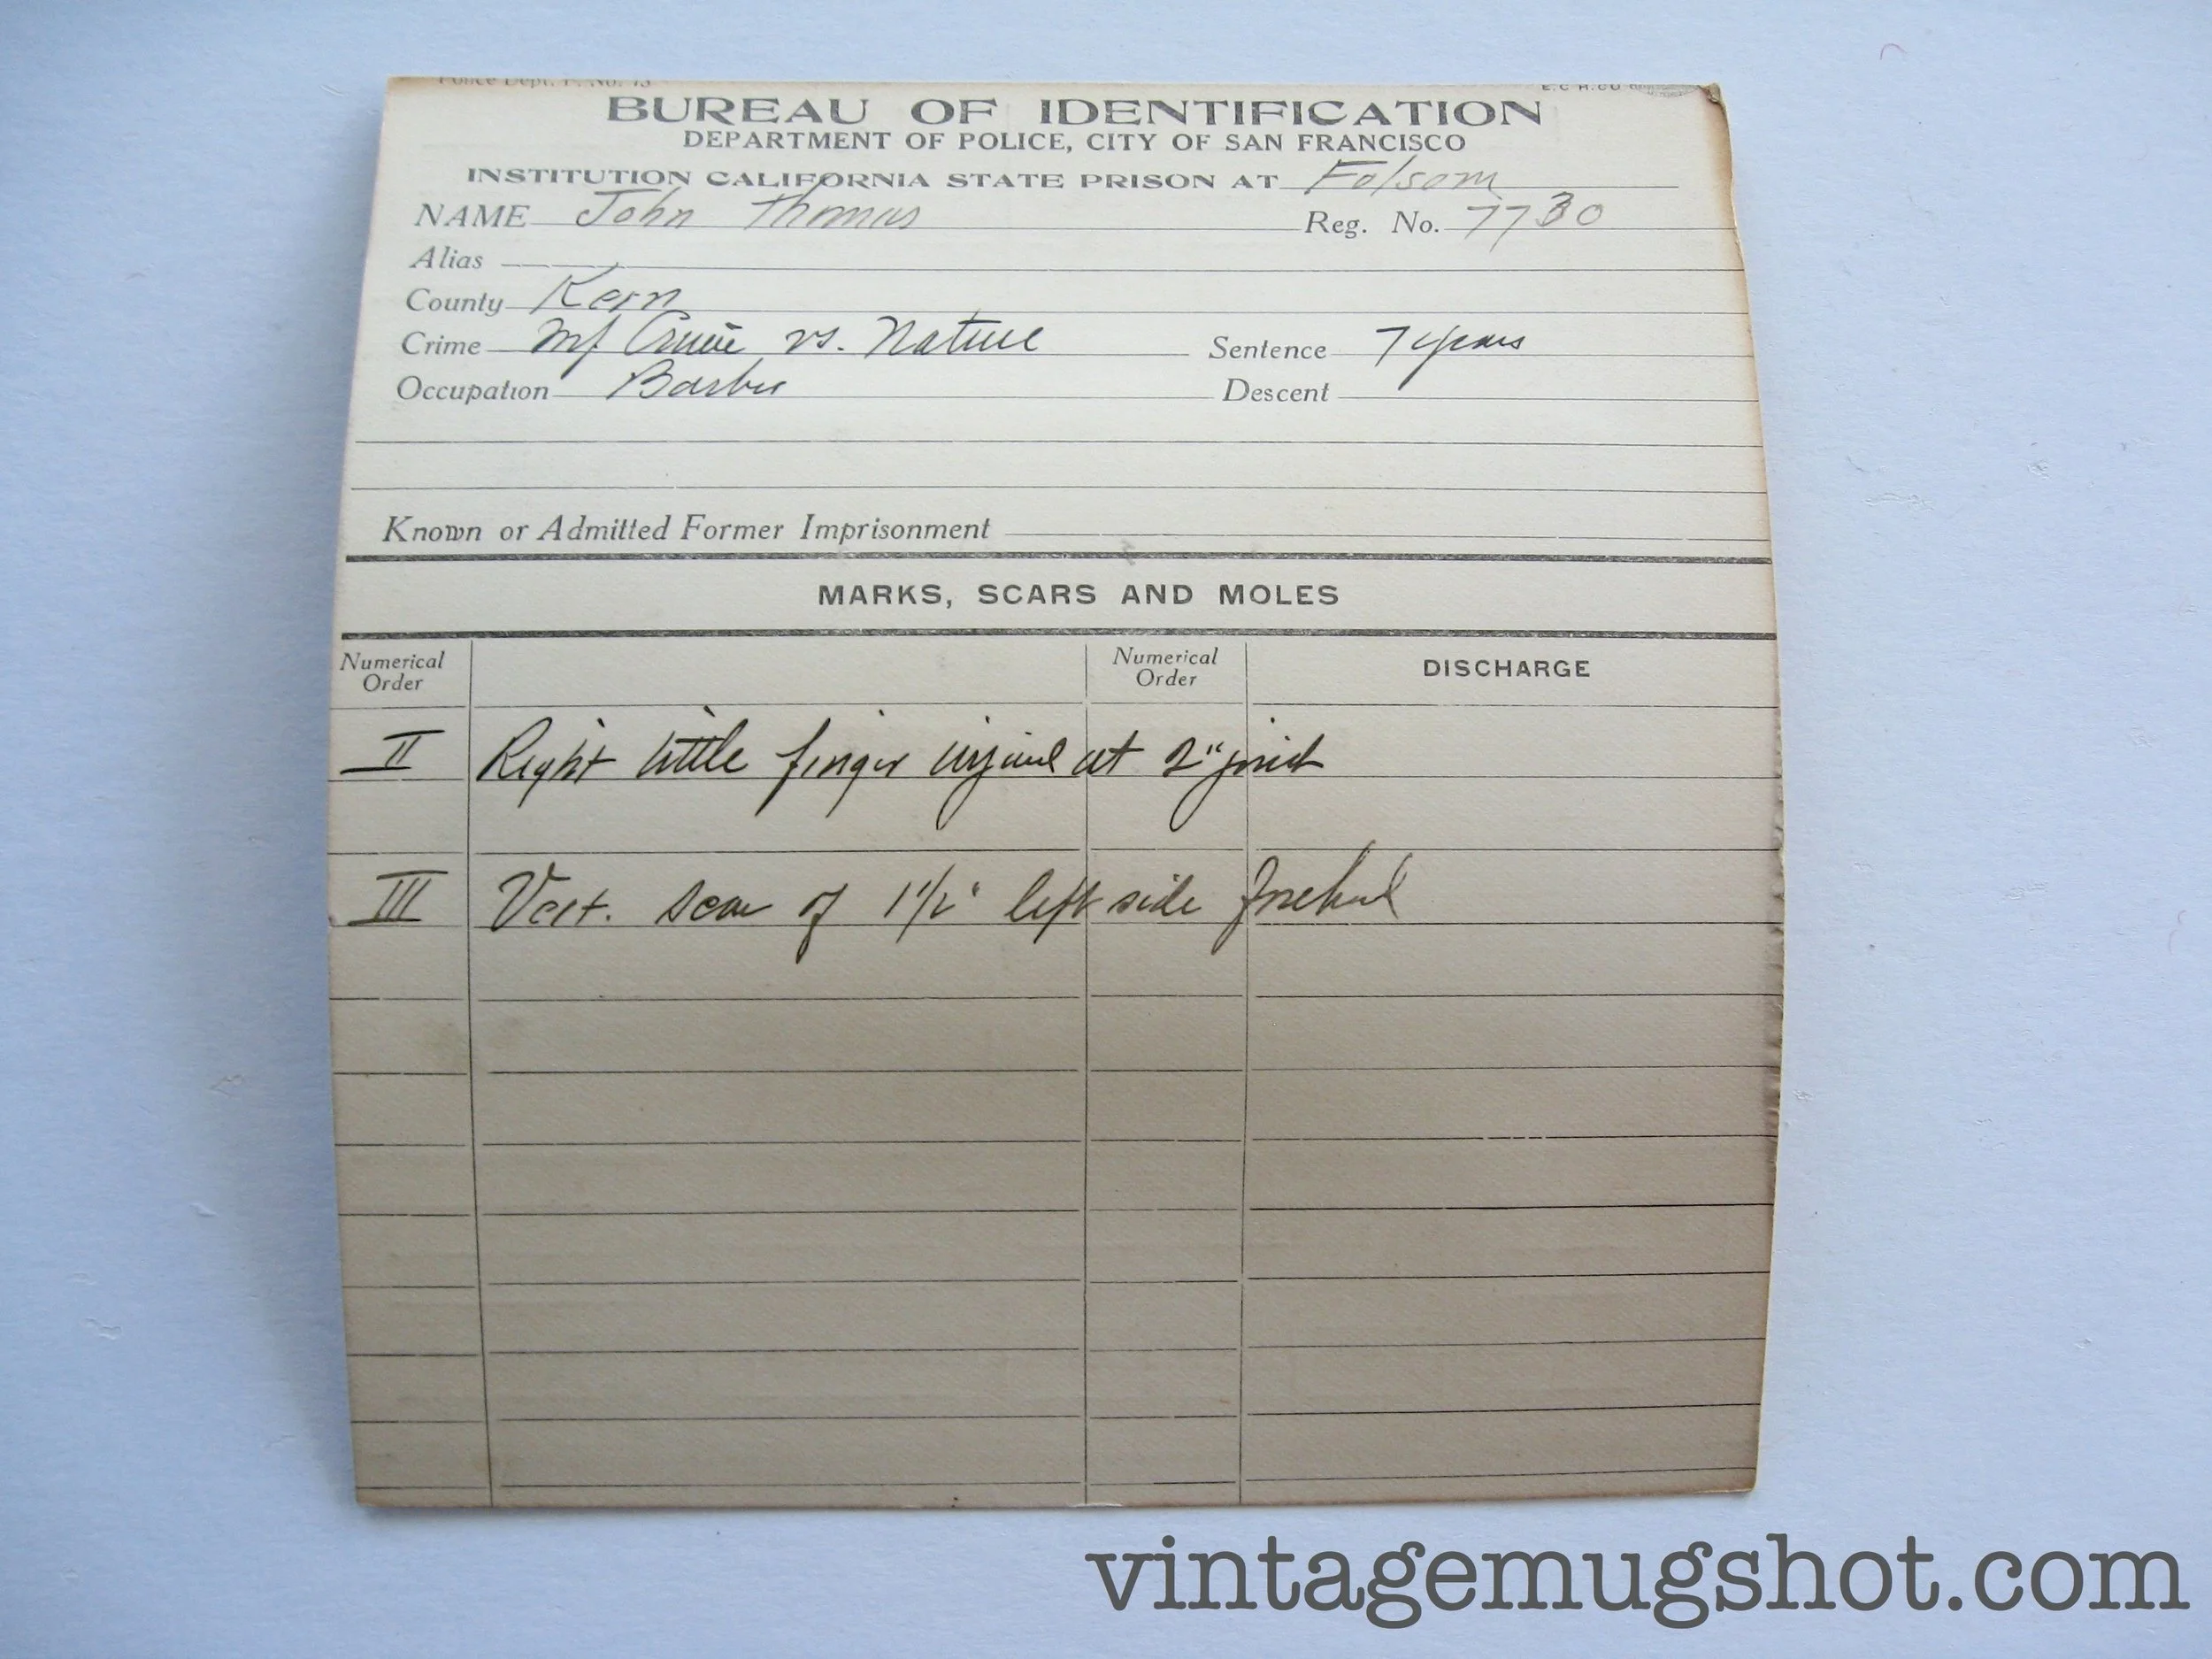 Police Dept. F. No. 13
BUREAU OF IDENTIFICATION
DEPARTMENT OF POLICE, CITY OF SAN FRANCISCO
INSTITUTION CALIFORNIA STATE PRISON AT Folsom
NAME John Thomas Reg. No. 7730
Alias
County Kern
Crime Inf Crime vs. Nature Sentence 7 years
Occupation Barber Descent
Known or Admitted Former Imprisonment
MARKS, SCARS AND MOLES
Numerical Order Numerical Order DISCHARGE
II Right little finger injured at 2" joint
III Vert. scar of 1 1/2" left side forehead
vintagemugshot.com